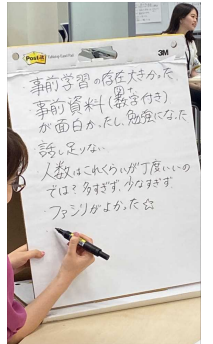 Post-it
3M
・事前学習の存在大きかった
・事前資料(図+数字付き)
が面白かったし、勉強になった
・話し足りない
・人数はこれくらいが丁度いいの
では?多すぎず、少なすぎず
・ファシリがよかった☆